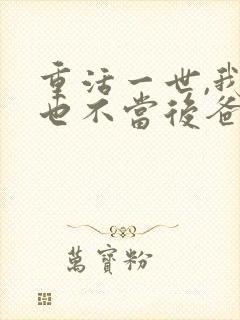 重活一世,我
也不當後爸
萬寶粉